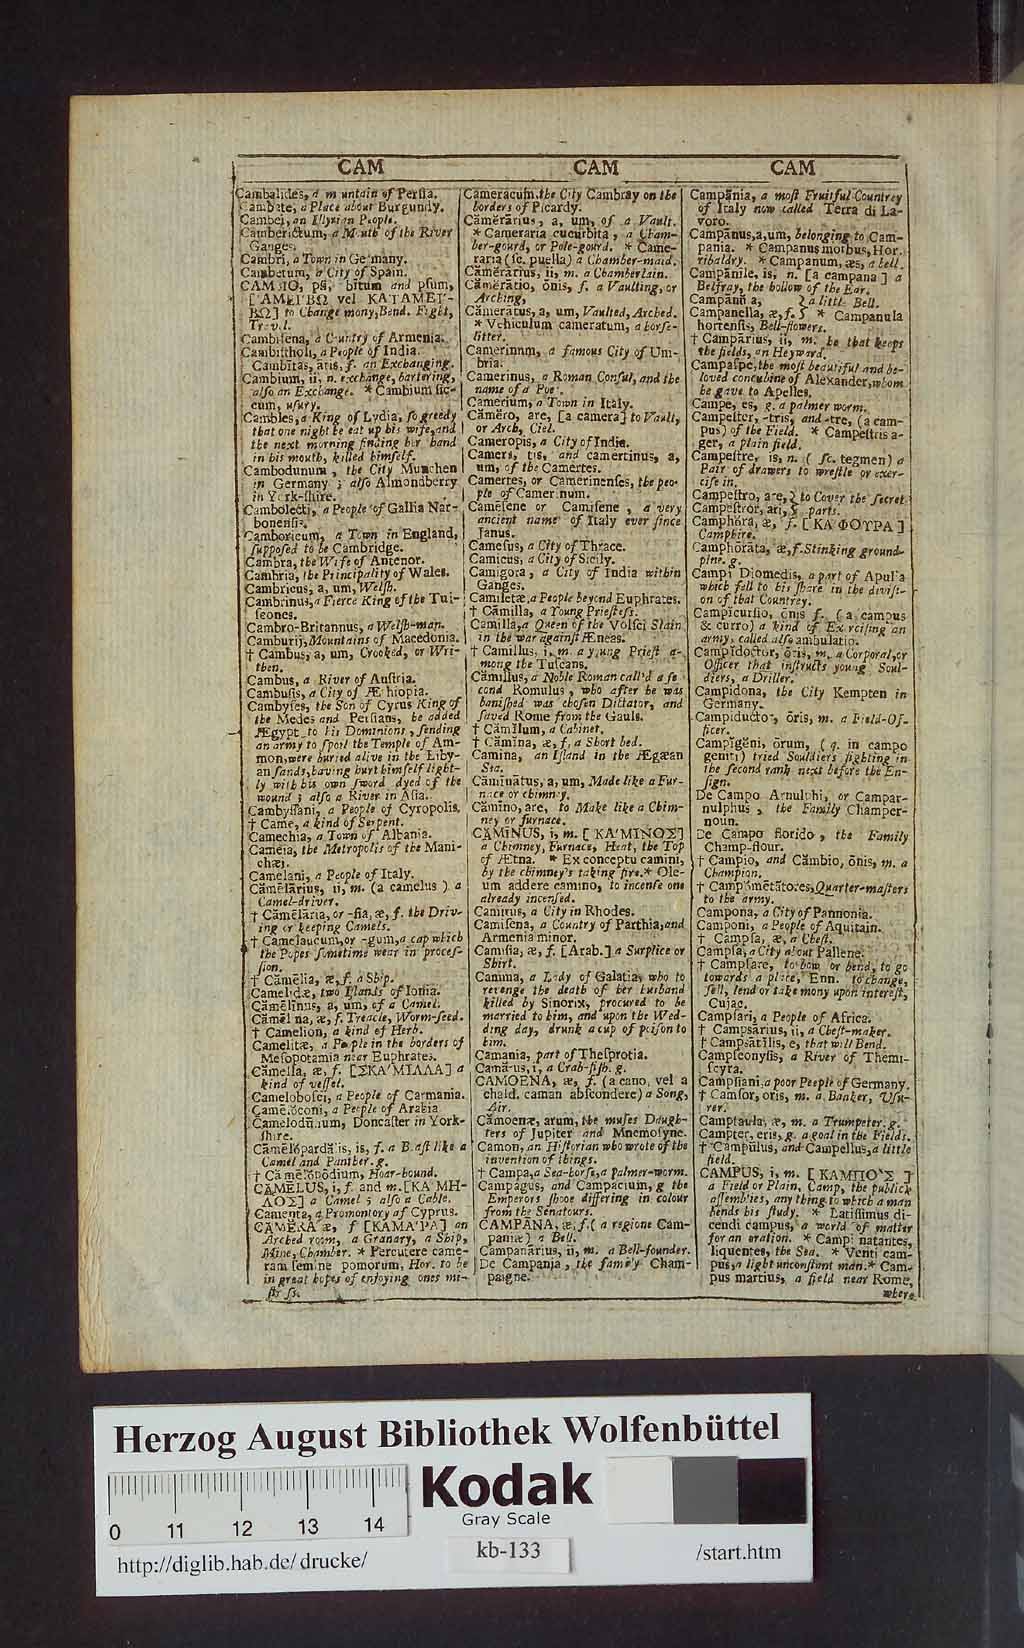 CAM
Cambalides, a m untain of Perſia.
Cambate, a Place about Burgundy.
Cambei, an Illyrian People.
Camberictum, a Mouth of the River
Ganges.
Cambri, a Town in Germany.
Cambetum, a City of Spain.
CAMBIO, pſi, bĭtum and pſum,
[ἈΜΕΙΒΩ vel ΚΑΤΑΜΕΙ-
ΒΩ] to Change mony, Bend. Fight,
Travel.
Cambiſena, a Country of Armenia.
Cambiſtholi, a People of India.
Cambĭtas, atis, f. an Exchanging.
Cambium, ii, n. exchange, bartering,
alſo an Exchange. * Cambium ſic-
cum, uſury.
Cambles, a King of Lydia, ſo greedy
that one night he eat up his wife, and
the next morning finding her hand
in his mouth, killed himſelf.
Cambodunum, the City Munchen
in Germany ; alſo Almondberry
in York-ſhire.
Cambolecti, a People of Gallia Nar-
bonenſis.
Camboricum, a Town in England,
ſuppoſed to be Cambridge.
Cambra, the Wife of Antenor.
Cambria, the Principality of Wales.
Cambricus, a, um, Welſh.
Cambrinus, a Fierce King of the Tui-
ſcones.
Cambro-Britannus, a Welſh-man.
Camburij, Mountains of Macedonia.
† Cambus, a, um, Crooked, or Wri-
then.
Cambus, a River of Auſtria.
Cambuſis, a City of Æthiopia.
Cambyſes, the Son of Cyrus King of
the Medes and Perſians, he added
Ægypt to his Dominions, ſending
an army to ſpoil the Temple of Am-
mon, were buried alive in the Liby-
an ſands, having hurt himſelf light-
ly with his own ſword dyed of the
wound ; alſo a River in Aſia.
Cambyſſani, a People of Cyropolis.
† Came, a kind of Serpent.
Camechia, a Town of Albania.
Cameia, the Metropolis of the Mani-
chæi.
Camelani, a People of Italy.
Cămēlārius, ii, m. (a camelus) a
Camel-driver.
† Cămēlāria, or -ſia, æ, f. the Driv-
ing or keeping Camels.
† Camelaucum, or -gum, a cap which
the Popes ſometime wear in proceſ-
ſion.
† Cămēlia, æ, f. a Ship.
Camelidæ, two Iſlands of Ionia.
Cămēlīnus, a, um, of a Camel.
Cămēlina, æ, f. Treacle, Worm-ſeed.
† Camelion, a kind of Herb.
Camelitæ, a People in the borders of
Meſopotamia near Euphrates.
Cămella, æ, f. [ΣΚΑΜΙΛΛΑ] a
kind of veſſel.
Cameloboſci, a People of Carmania.
Cameloconi, a People of Arabia
Camelodunum, Doncaſter in York-
ſhire.
Cămēlŏpardălis, is, f. a Beaſt like a
Camel and Panther. g.
† Cămēlŏpŏdium, Hoar-hound.
CĂMĒLUS, i, f. and m. [ΚΑΜΗ-
ΛΟΣ] a Camel ; alſo a Cable.
Camenta, a Promontory of Cyprus.
CĂMĔRA æ, f [ΚΑΜΑΡΑ] an
Arched room, a Granary, a Ship,
Mine, Chamber. * Percutere came-
ram ſemine pomorum, Hor. to be
in great hopes of enjoying ones mi-
ſtreſs.
CAM
Cameracum, the City Cambray on the
borders of Picardy.
Cămĕrārius, a, um, of a Vault.
* Cameraria cucurbita, a Cham-
ber-gourd, or Pole-gourd. * Came-
raria (ſc. puella) a Chamber-maid.
Cămĕrārius, ii, m. a Chamberlain.
Cămĕrātio, ōnis, f. a Vaulting, or
Arching,
Cămĕrātus, a, um, Vaulted, Arched.
* Vehiculum cameratum, a horſe-
litter.
Camerinum, a famous City of Um-
bria.
Camerinus, a Roman Conſul, and the
name of a Poet.
Camerium, a Town in Italy.
Cămĕro, are, [a camera] to Vault,
or Arch, Ciel.
Cameropis, a City of India.
Camers, tis, and camertinus, a,
um, of the Camertes.
Camertes, or Camerinenſes, the peo-
ple of Camerinum.
Cameſene or Camiſene, a very
ancient name of Italy ever ſince
Janus.
Cameſus, a City of Thrace.
Camicus, a City of Sicily.
Camigora, a City of India within
Ganges.
Camiletæ, a People beyond Euphrates.
† Cămilla, a Young Prieſteſs.
Camilla, a Queen of the Volſci Slain
in the war againſt Æneas.
† Camillus, i, m. a young Prieſt a-
mong the Tuſcans.
Cămillus, a Noble Roman call'd a ſe
cond Romulus, who after he was
baniſhed was choſen Dictator, and
ſaved Rome from the Gauls.
† Cămīlum, a Cabinet.
† Cămīna, æ, f. a Short bed.
Camina, an Iſland in the Ægæan
Sea.
Cămīnātus, a, um, Made like a Fur-
nace or chimny.
Cămīno, are, to Make like a Chim-
ney or furnace.
CĂMĪNUS, i, m. [ΚΑΜΙΝΟΣ]
a Chimney, Furnace, Heat, the Top
of Ætna. * Ex conceptu camini,
by the chimney's taking fire. * Ole-
um addere camino, to incenſe one
already incenſed.
Camirus, a City in Rhodes.
Camiſena, a Country of Parthia, and
Armenia minor.
Camiſia, æ, f. [Arab.] a Surplice or
Shirt.
Camma, a Lady of Galatia, who to
revenge the death of her husband
killed by Sinorix, procured to be
married to him, and upon the Wed-
ding day, drunk a cup of poiſon to
him.
Camania, part of Theſprotia.
Cama-us, i, a Crab-fiſh. g.
CAMOENA, æ, f. (a cano, vel a
chald. caman abſcondere) a Song,
Air.
Cămoenæ, arum, the muſes Daugh-
ters of Jupiter and Mnemoſyne.
Camon, an Hiſtorian who wrote of the
invention of things.
† Campa, a Sea-horſe, a palmer-worm.
Campāgus, and Campacium, g the
Emperors ſhooe differing in colour
from the Senatours.
CAMPĀNA, æ, f. ( a regione Cam-
paniæ) a Bell.
Campanārius, ii, m. a Bell-founder.
De Campania, the family Cham-
paigne.
CAM
Campānia, a moſt Fruitful Countrey
of Italy now called Terra di La-
voro.
Campānus, a, um, belonging to Cam-
pania. * Campanus morbus, Hor.
ribaldry. * Campanum, æs, a bell.
Campānile, is, n. [a campana] a
Belfray, the hollow of the Ear.
Campānŭla, } a little Bell.
Campanella, æ, f. } * Campanula
hortenſis, Bell-flowers.
† Campārius, ii, m. he that keeps
the fields, an Heyward.
Campaſpe, the moſt beautiful and be-
loved concubine of Alexander, whom
he gave to Apelles.
Campe, es, g. a palmer worm.
Campeſter, -tris, and -tre, (a cam-
pus) of the Field. * Campeſtris a-
ger, a plain field.
Campeſtre, is, n. ( ſc. tegmen) a
Pair of drawers to wreſtle or exer-
ciſe in.
Campeſtro, are, } to Cover the ſecret
Campeſtror, ari, } parts.
Camphŏra, æ, f. [ΚΑΦΟΥΡΑ]
Camphire.
Camphŏrāta, æ, f. Stinking ground-
pine. g.
Campi Diomedis, a part of Apulia
which fell to his ſhare in the diviſi-
on of that Countrey.
Campicurſio, ōnis f. ( a campus
& curro) a kind of Exerciſing an
army, called alſo ambulatio.
Campĭdoctor, ōris, m. a Corporal, or
Officer that inſtructs young Soul-
diers, a Driller.
Campidona, the City Kempten in
Germany.
Campiductor, ōris, m. a Field-Of-
ficer.
Campĭgĕni, ōrum, ( q. in campo
geniti) tried Souldiers fighting in
the ſecond rank next before the En-
ſign.
De Campo Arnulphi, or Campar-
nulphus, the Family Champer-
noun.
De Campo florido, the Family
Champ-flour.
† Campio, and Cămbio, ōnis, m. a
Champion.
† Campŏmētātores, Quarter-maſters
to the army.
Campona, a City of Pannonia.
Camponi, a People of Aquitain.
† Campſa, æ, a Cheſt.
Campſa, a City about Pallene.
† Campſare, to bow or bend, to go
towards a place, Enn. to change,
ſell, lend or take mony upon intereſt,
Cujac.
Campſari, a People of Africa.
† Campsārius, ii, a Cheſt-maker.
† Campsātĭlis, e, that will Bend.
Campſeonyſis, a River of Themi-
ſcyra.
Campſiani, a poor People of Germany.
† Camſor, oris, m. a Banker, Uſu-
rer.
Camptaula, æ, m. a Trumpeter. g.
Campter, eris, g. a goal in the Fields.
† Campŭlus, and Campellus, a little
field.
CAMPUS, i, m. [ΚΑΜΠΟΣ]
a Field or Plain, Camp, the publick
aſſemblies, any thing to which a man
bends his ſtudy. * Latiſſimus di-
cendi campus, a world of matter
for an oration. * Campi natantes,
liquentes, the Sea. * Venti cam-
pus, a light unconſtant man. * Cam-
pus martius, a field near Rome,
where
Herzog August Bibliothek Wolfenbüttel
Kodak
Gray Scale
0 11 12 13 14
http://diglib.hab.de/drucke/
kb-133
/start.htm